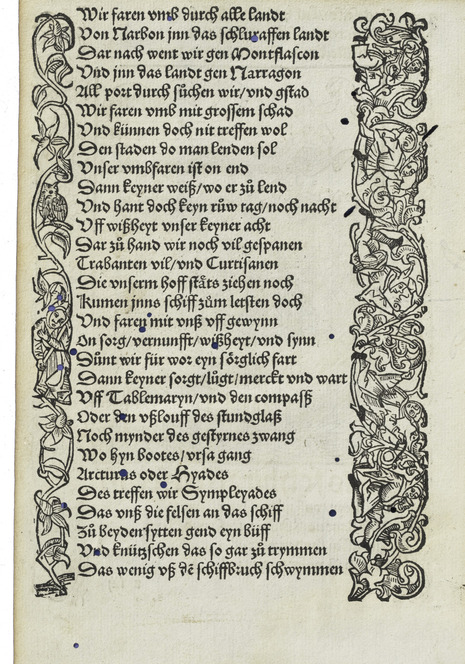 Wir faren vmb durch alle landt
Von Narbon jnn das schluraffen landt
Dar nach went wir gen Montflascon
Vnd jnn das landt gen Narragon
All port durch sůchen wir/ vnd gstad
Wir faren vmb mit grossem schad
Vnd künnen doch nit treffen wol
Den staden do man lenden sol
Vnser vmbfaren ist on end
Dann keyner weiß/ wo er zů lend
Vnd hant doch keyn růw tag/ noch nacht
Vff wißheyt vnser keyner acht
Dar zů hand wir noch vil gespanen
Trabanten vil/ vnd Curtisanen
Die vnserm hoff stäts ziehen noch
Kumen jnns schiff zům letsten doch
Vnd faren mit vnß vff gewynn
On sorg/ vernunfft/ wißheyt/ vnd synn
Sünt wir für wor eyn sörglich fart
Dann keyner sorgt/ lůgt/ merckt vnd wart
Vff Tablemaryn/ vnd den compasß
Oder den vßlouff des stundglaß
Noch mynder des gestyrnes zwang
Wo hyn bootes/ vrsa gang
Arcturus oder Hyades
Des treffen wir Sympleyades
Das vnß die felsen an das schiff
Zů beyden sytten gend eyn büff
Vnd knützschen das so gar zů trymmen
Das wenig vß dē schiffbruch schwymmen